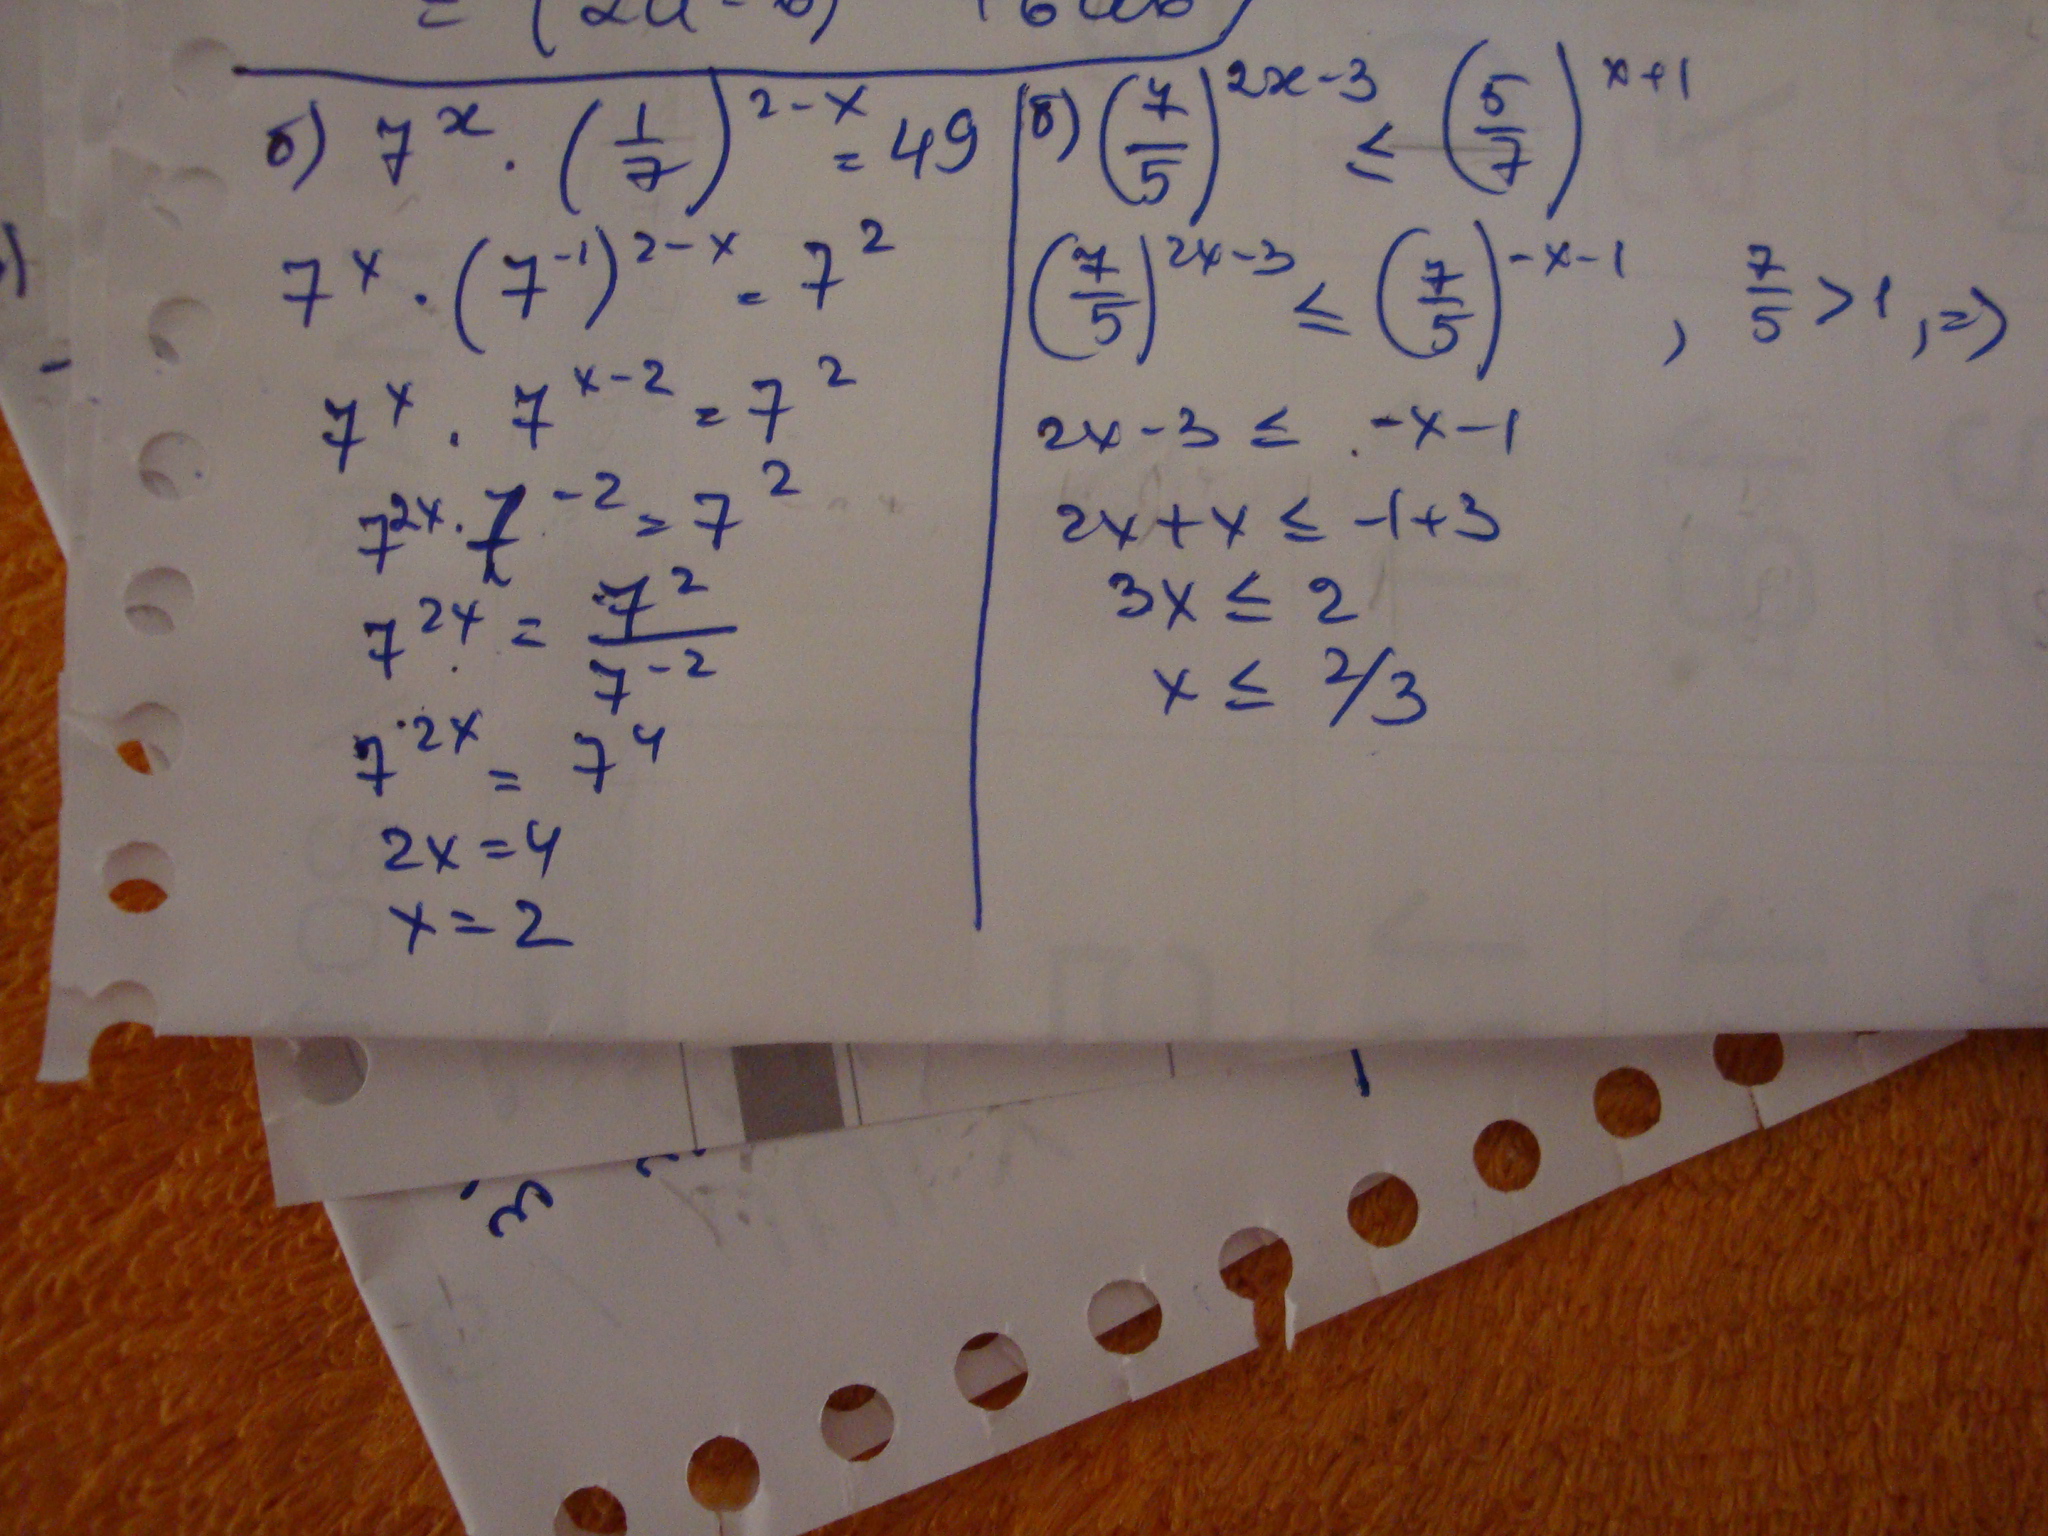 б) 7^x · (1/7)^(2-x) = 49
7^x · (7^-1)^(2-x) = 7^2
7^x · 7^(x-2) = 7^2
7^(2x) · 7^-2 = 7^2
7^(2x) = 7^2/7^-2
7^(2x) = 7^4
2x = 4
x = 2
б) (7/5)^(2x-3) ≤ (5/7)^(x+1)
(7/5)^(2x-3) ≤ (7/5)^(-x-1) , 7/5 > 1, =>
2x-3 ≤ -x-1
2x+x ≤ -1+3
3x ≤ 2
x ≤ 2/3